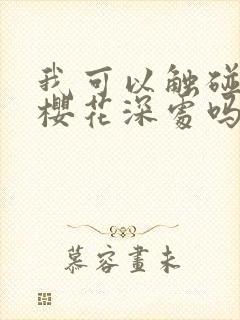 我可以触碰
樱花深处吗
慕容畫未